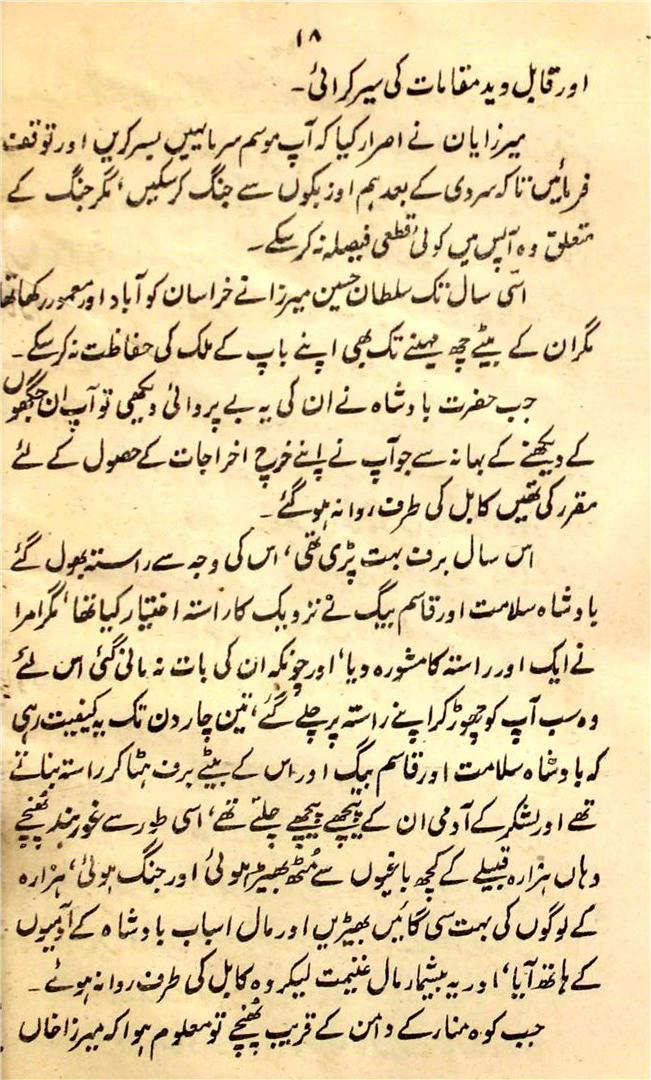 ۱۸
اور قابل دید مقامات کی سیر کرائی۔
میرزایان نے اصرار کیا کہ آپ موسم سرما یہیں بسر کریں اور توقف
فرمائیں تاکہ سردی کے بعد ہم اوزبکوں سے جنگ کرسکیں، مگر جنگ کے
متعلق وہ آپس میں کوئی قطعی فیصلہ نہ کرسکے۔
اسّی سال تک سلطان حسین میرزا نے خراسان کو آباد اور معمور رکھا تھا
مگر ان کے بیٹے چھ مہینے تک بھی اپنے باپ کے ملک کی حفاظت نہ کرسکے۔
جب حضرت بادشاہ نے ان کی یہ بے پروائی دیکھی تو آپ ان جگہوں
کے دیکھنے کے بہانہ سے جو آپ نے اپنے خرچ اخراجات کے حصول کے لئے
مقرر کی تھیں کابل کی طرف روانہ ہوگئے۔
اس سال برف بہت پڑی تھی، اس کی وجہ سے راستہ بھول گئے
بادشاہ سلامت اور قاسم بیگ نے نزدیک کا راستہ اختیار کیا تھا، مگر امرا
نے ایک اور راستہ کا مشورہ دیا، اور چونکہ ان کی بات نہ مانی گئی اس لئے
وہ سب آپ کو چھوڑ کر اپنے راستہ پر چلے گئے، تین چار دن تک یہ کیفیت رہی
کہ بادشاہ سلامت اور قاسم بیگ اور اس کے بیٹے برف ہٹا کر راستہ بناتے
تھے اور لشکر کے آدمی ان کے پیچھے پیچھے چلتے تھے، اسی طور سے غور بند پہنچے
وہاں ہزارہ قبیلے کے کچھ باغیوں سے مُٹھ بھیڑ ہوئی اور جنگ ہوئی، ہزارہ
کے لوگوں کی بہت سی گائیں بھیڑیں اور مال اسباب بادشاہ کے آدمیوں
کے ہاتھ آیا، اور یہ بیشمار مال غنیمت لیکر وہ کابل کی طرف روانہ ہوئے۔
جب کوہ منار کے دامن کے قریب پہنچے تو معلوم ہوا کہ میرزا خاں